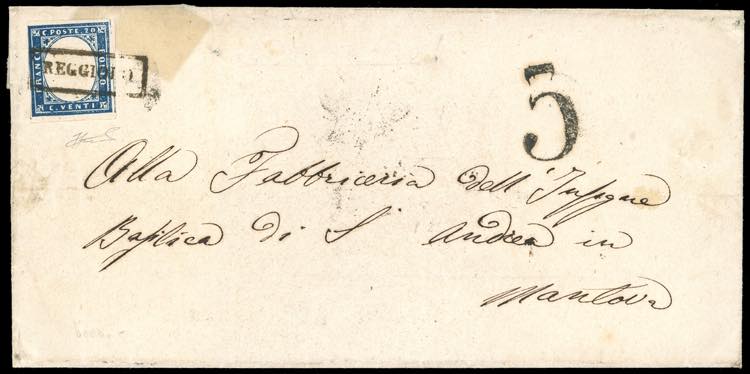 C. POSTE. 20
FRANCO
BOLLO
C. VENTI
REGGIO
5
Alla Fabbriceria dell'Insigne
Basilica di S. Andrea in
Mantova